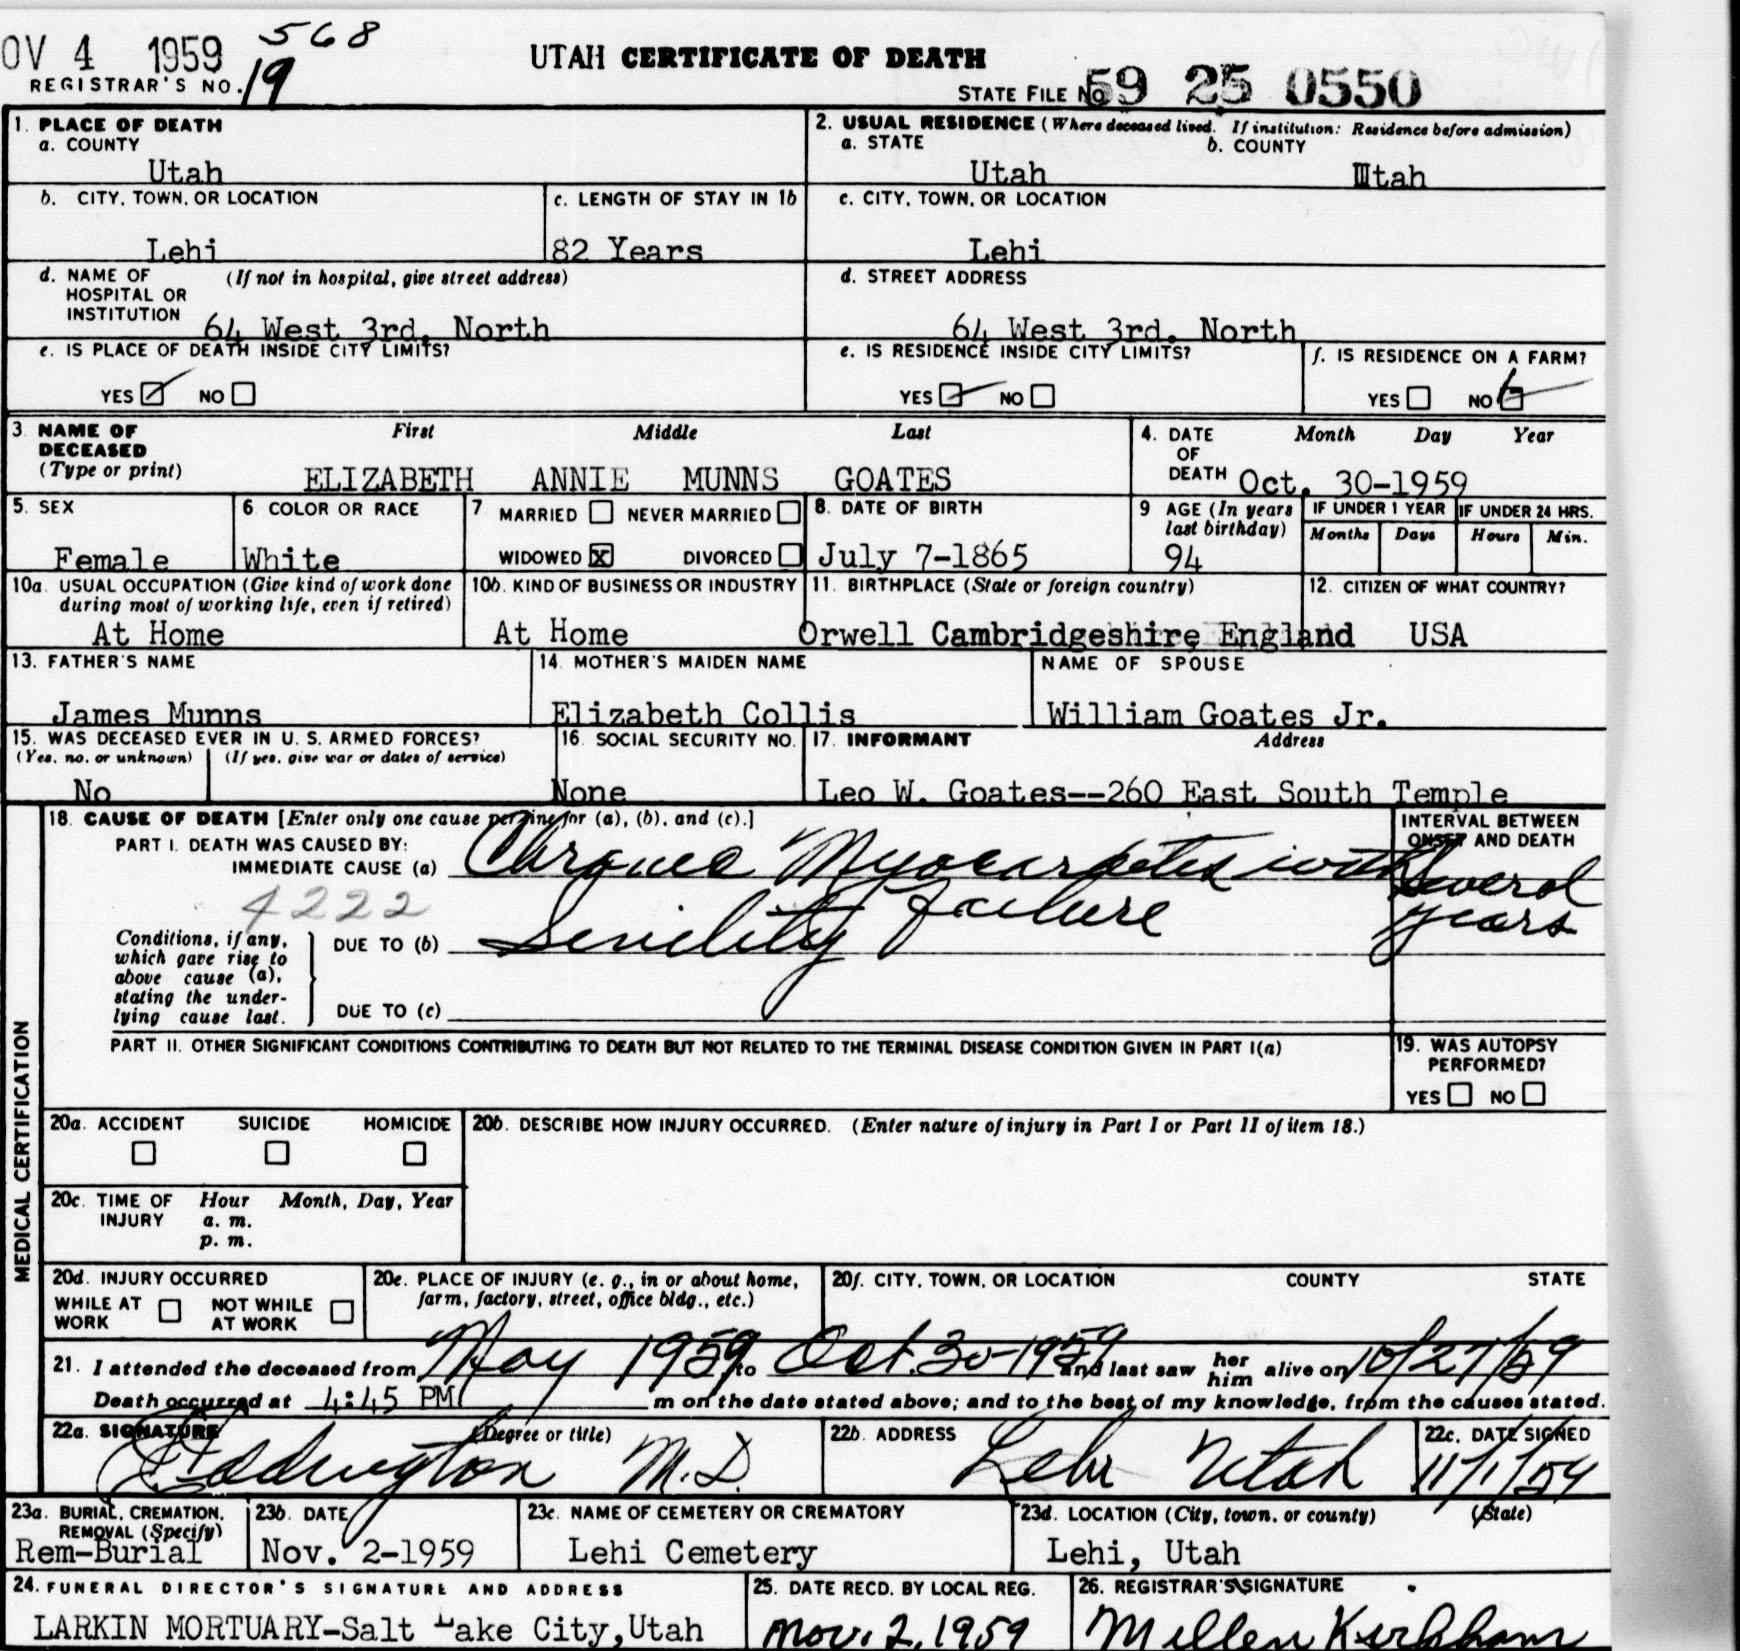 OV 4 1959 568
UTAH CERTIFICATE OF DEATH
REGISTRAR'S NO. 19
STATE FILE No 59 25 0550
1. PLACE OF DEATH
a. COUNTY
Utah
2. USUAL RESIDENCE (Where deceased lived. If institution: Residence before admission)
a. STATE b. COUNTY
Utah Utah
b. CITY, TOWN, OR LOCATION
Lehi
c. LENGTH OF STAY IN 1b
82 Years
c. CITY, TOWN, OR LOCATION
Lehi
d. NAME OF (If not in hospital, give street address)
HOSPITAL OR
INSTITUTION
64 West 3rd. North
d. STREET ADDRESS
64 West 3rd. North
e. IS PLACE OF DEATH INSIDE CITY LIMITS?
YES NO
e. IS RESIDENCE INSIDE CITY LIMITS?
YES NO
f. IS RESIDENCE ON A FARM?
YES NO
3. NAME OF First Middle Last
DECEASED
(Type or print)
ELIZABETH ANNIE MUNNS GOATES
4. DATE Month Day Year
OF
DEATH Oct. 30-1959
5. SEX
Female
6. COLOR OR RACE
White
7 MARRIED NEVER MARRIED
WIDOWED X DIVORCED
8. DATE OF BIRTH
July 7-1865
9 AGE (In years
last birthday)
94
IF UNDER 1 YEAR IF UNDER 24 HRS.
Months Days Hours Min.
10a. USUAL OCCUPATION (Give kind of work done
during most of working life, even if retired)
At Home
10b. KIND OF BUSINESS OR INDUSTRY
At Home
11. BIRTHPLACE (State or foreign country)
Orwell Cambridgeshire England
12. CITIZEN OF WHAT COUNTRY?
USA
13. FATHER'S NAME
James Munns
14. MOTHER'S MAIDEN NAME
Elizabeth Collis
NAME OF SPOUSE
William Goates Jr.
15. WAS DECEASED EVER IN U. S. ARMED FORCES?
(Yes, no, or unknown) (If yes, give war or dates of service)
No
16. SOCIAL SECURITY NO.
None
17. INFORMANT Address
Leo W. Goates--260 East South Temple
MEDICAL CERTIFICATION
18. CAUSE OF DEATH [Enter only one cause per line for (a), (b), and (c).]
PART I. DEATH WAS CAUSED BY:
IMMEDIATE CAUSE (a) Chronic Myocarditis with
failure
4222
Conditions, if any,
which gave rise to
above cause (a),
stating the under-
lying cause last.
DUE TO (b) Senility
DUE TO (c)
INTERVAL BETWEEN
ONSET AND DEATH
Several
years
PART II. OTHER SIGNIFICANT CONDITIONS CONTRIBUTING TO DEATH BUT NOT RELATED TO THE TERMINAL DISEASE CONDITION GIVEN IN PART I(a)
19. WAS AUTOPSY
PERFORMED?
YES NO
20a. ACCIDENT SUICIDE HOMICIDE
20b. DESCRIBE HOW INJURY OCCURRED. (Enter nature of injury in Part I or Part II of item 18.)
20c. TIME OF Hour Month, Day, Year
INJURY a. m.
p. m.
20d. INJURY OCCURRED
WHILE AT NOT WHILE
WORK AT WORK
20e. PLACE OF INJURY (e. g., in or about home,
farm, factory, street, office bldg., etc.)
20f. CITY, TOWN, OR LOCATION COUNTY STATE
21. I attended the deceased from May 1959 to Oct. 30-1959 and last saw her him alive on 10/27/59
Death occurred at 4:45 PM m on the date stated above; and to the best of my knowledge, from the causes stated.
22a. SIGNATURE (Degree or title)
Eddington M.D.
22b. ADDRESS
Lehi Utah
22c. DATE SIGNED
11/1/59
23a. BURIAL, CREMATION,
REMOVAL (Specify)
Rem-Burial
23b. DATE
Nov. 2-1959
23c. NAME OF CEMETERY OR CREMATORY
Lehi Cemetery
23d. LOCATION (City, town, or county) (State)
Lehi, Utah
24. FUNERAL DIRECTOR'S SIGNATURE AND ADDRESS
LARKIN MORTUARY-Salt Lake City, Utah
25. DATE RECD. BY LOCAL REG.
Nov. 2, 1959
26. REGISTRAR'S SIGNATURE
Millen Kirkham